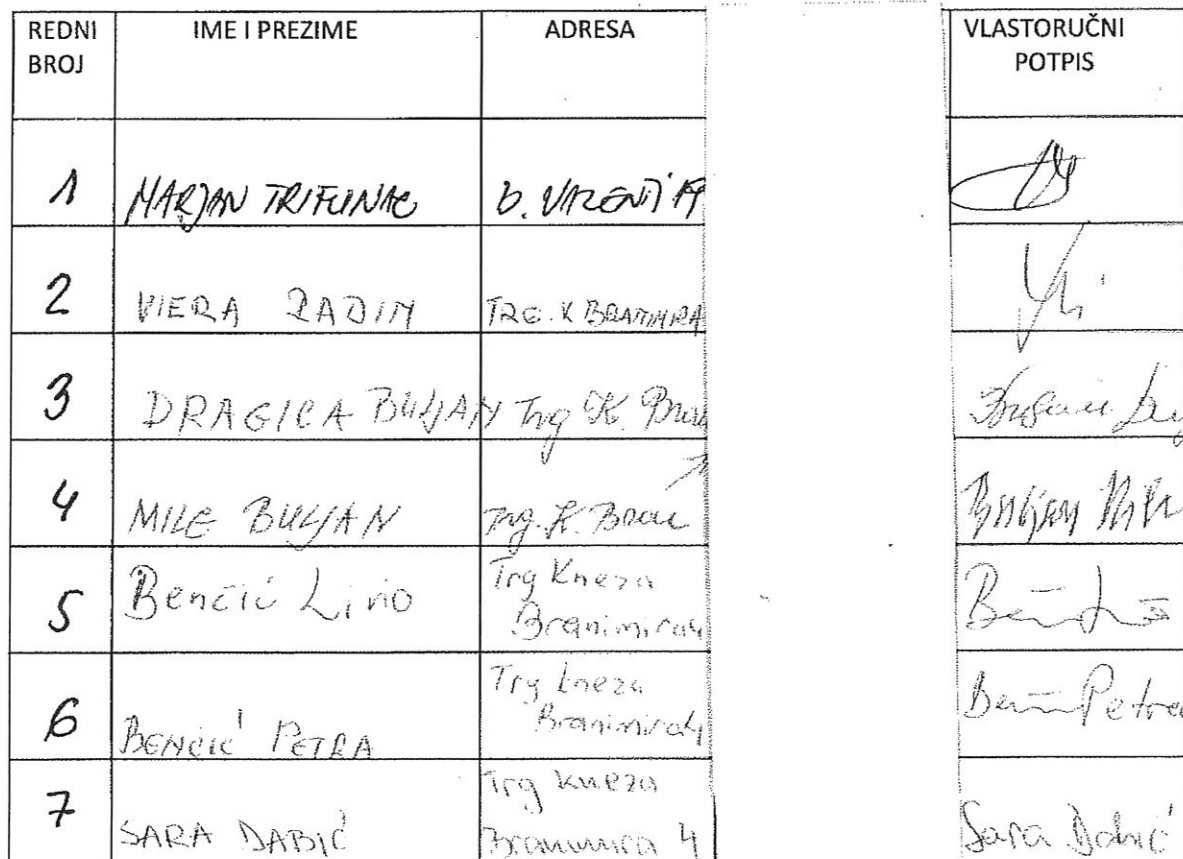 REDNI BROJ IME I PREZIME ADRESA VLASTORUČNI POTPIS
1 MARJAN TRIFUNAC D. VALENTI 19
2 VIERA RADIN TRG. K BRANIMIRA
3 DRAGICA BULJAN Trg K. Bra
4 MILE BULJAN Trg. K. Bran
5 Benčić Livio Trg Kneza
Branimira 4
6 BENČIĆ PETRA Trg kneza
Branimira 4 Petra
7 SARA DABIĆ Trg kneza
Branimira 4 Sara Dabić